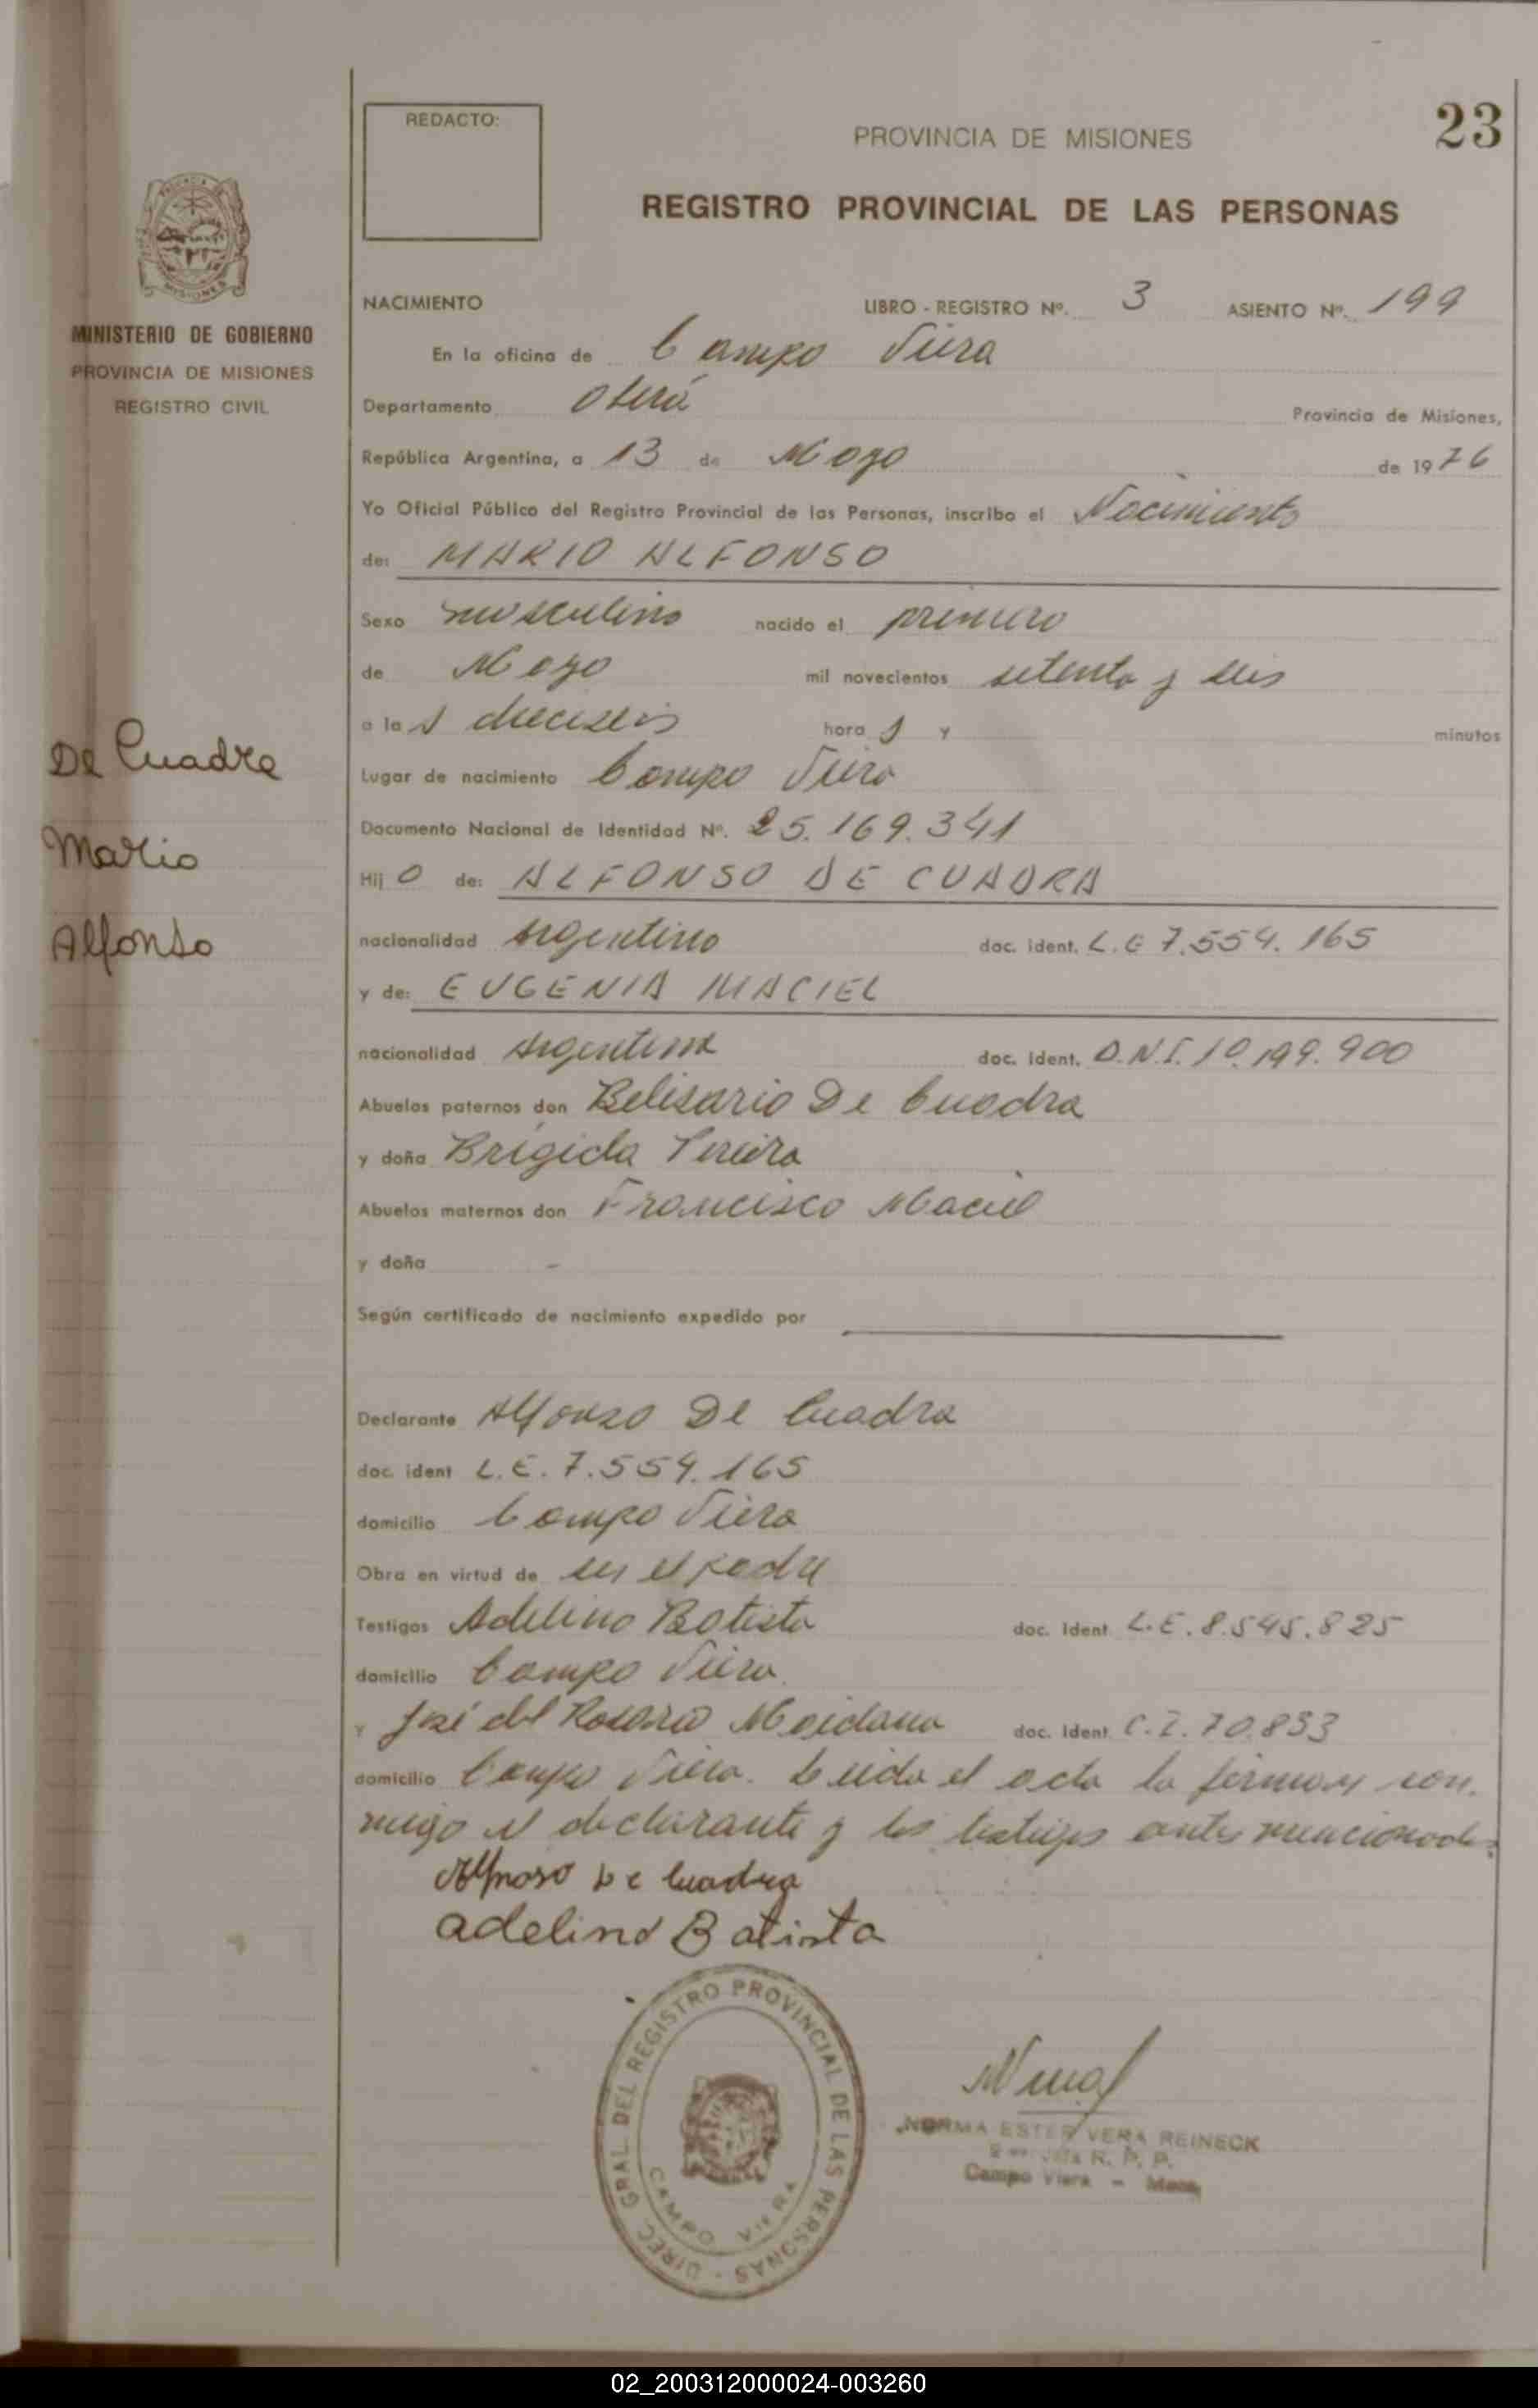 REDACTO:
PROVINCIA DE MISIONES
23
REGISTRO PROVINCIAL DE LAS PERSONAS
PROVINCIA DE
MISIONES
MINISTERIO DE GOBIERNO
PROVINCIA DE MISIONES
REGISTRO CIVIL
NACIMIENTO LIBRO - REGISTRO Nº. 3 ASIENTO Nº. 199
En la oficina de Campo Viera
Departamento Oberá Provincia de Misiones,
República Argentina, a 13 de Mayo de 1976
Yo Oficial Público del Registro Provincial de las Personas, inscribo el Nacimiento
de: MARIO ALFONSO
Sexo masculino nacido el primero
de Mayo mil novecientos setenta y seis
a las dieciseis horas y minutos
Lugar de nacimiento Campo Viera
Documento Nacional de Identidad Nº. 25.169.341
Hijo de: ALFONSO DE CUADRA
nacionalidad Argentino doc. ident. L.E 7.554.165
y de: EUGENIA MACIEL
nacionalidad Argentina doc. ident. D.N.I. 10.199.900
Abuelos paternos don Belisario De Cuadra
y doña Brígida Pereira
Abuelos maternos don Francisco Maciel
y doña -
Según certificado de nacimiento expedido por
De Cuadra
Mario
Alfonso
Declarante Alfonso De Cuadra
doc. ident L.E. 7.554.165
domicilio Campo Viera
Obra en virtud de ser el padre
Testigos Adelino Batista doc. Ident L.E. 8.545.825
domicilio Campo Viera.
y José del Rosario Maidana doc. Ident C.I. 70.853
domicilio Campo Viera. Leida el acta la firman con-
migo el declarante y los testigos antes mencionados
Alfonso De Cuadra
adelino Batista
DIREC. GRAL. DEL REGISTRO PROVINCIAL DE LAS PERSONAS -
CAMPO VIERA
NORMA ESTER VERA REINECK
R. P. P.
Campo Viera -
02_200312000024-003260